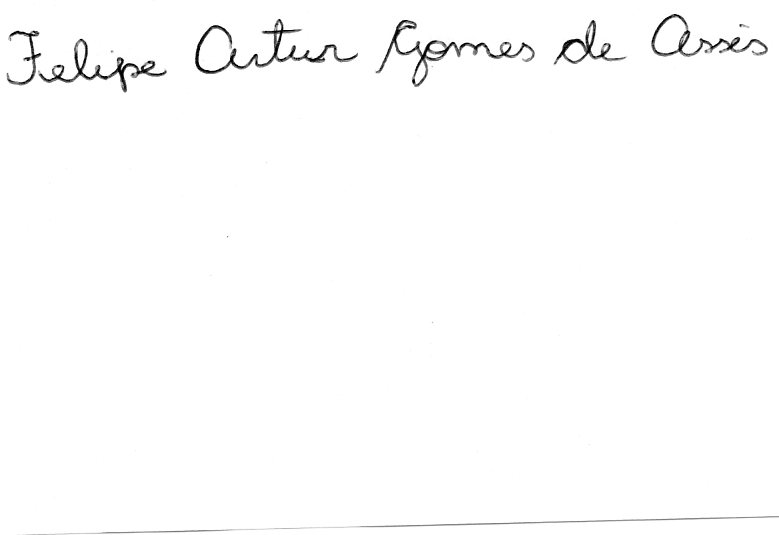 Felipe Artur Gomes de Assis